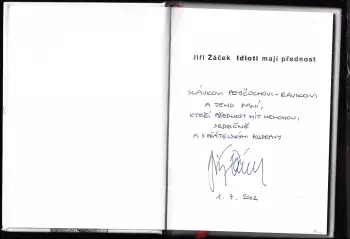 Jiří Žáček Idioti mají přednost
SLÁVKOVI PETŘÍČOVI-RAVIKOVI
A JEHO PANÍ,
KTEŘÍ PŘEDNOST MÍT NEMOHOU,
SRDEČNĚ
A S PŘÁTELSKÝMI POZDRAVY
1. 7. 2002